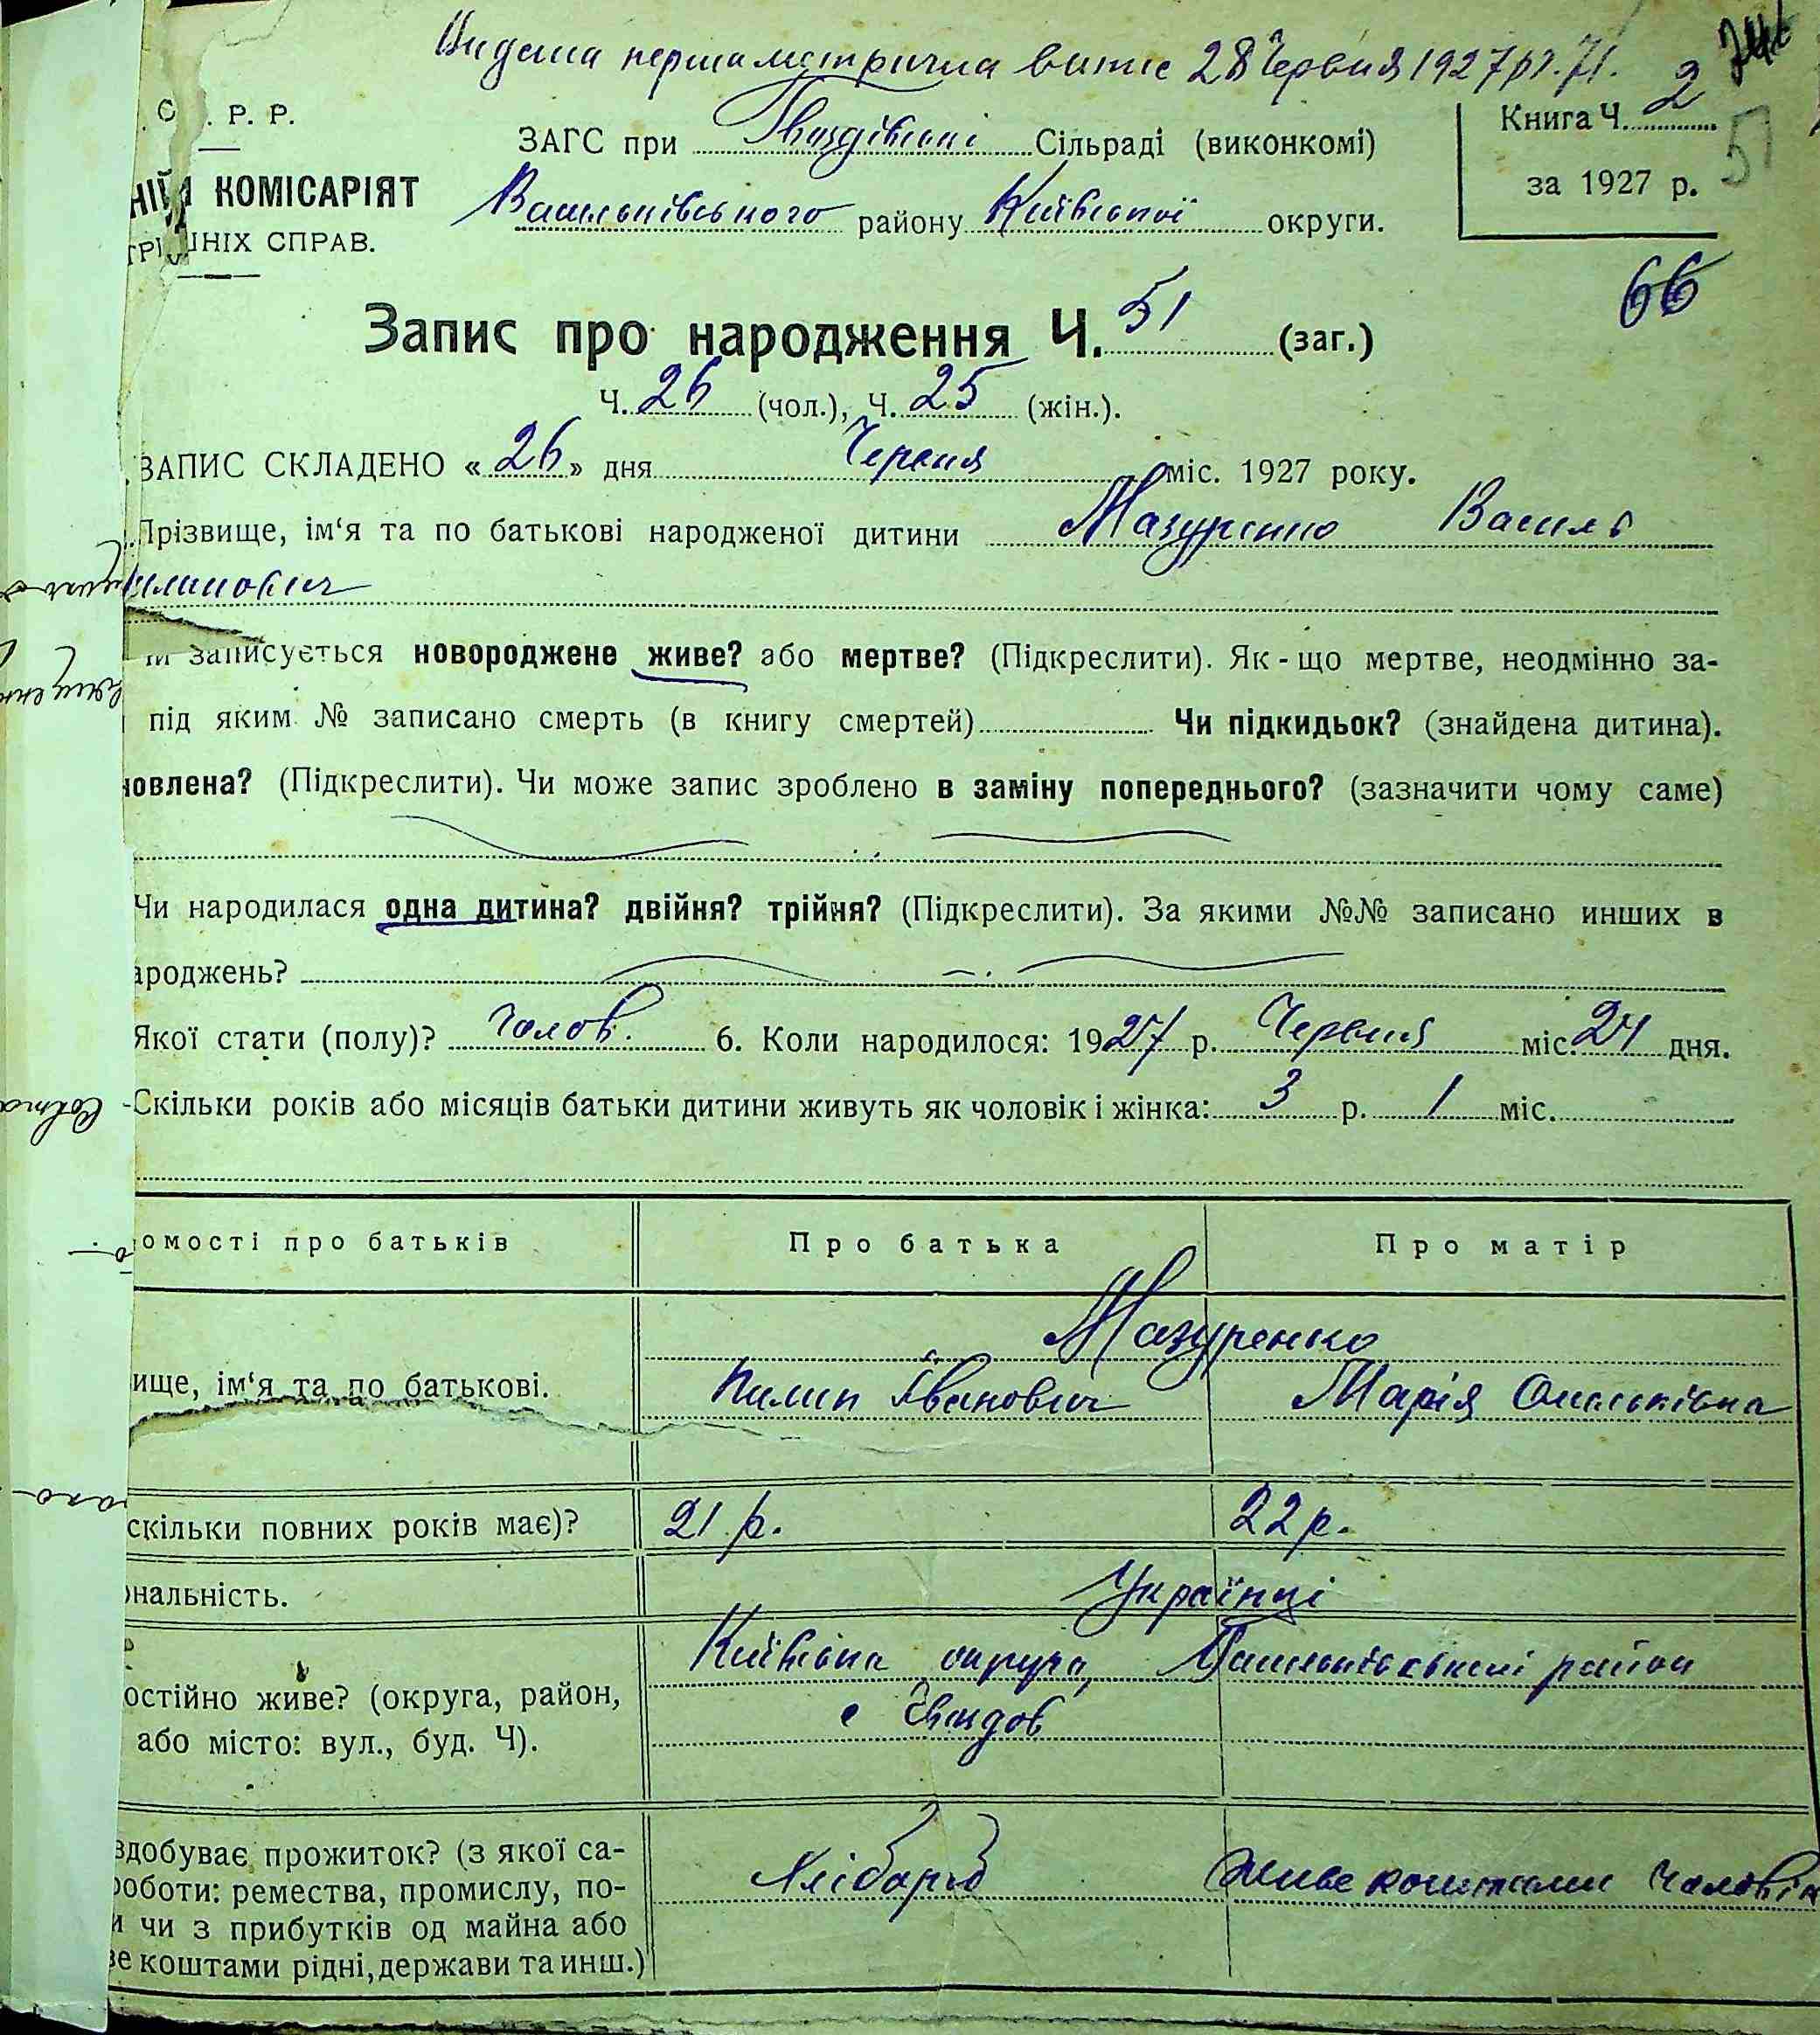 Видана перша метрична випис 28 Червня 1927 р.
С. Р. Р.
ЗАГС при Гвоздівській Сільраді (виконкомі)
Книга Ч. 2
51
КОМІСАРІЯТ
Васильківського району Київської округи.
за 1927 р.
ШНІХ СПРАВ.
66
Запис про народження Ч. 51 (заг.)
Ч. 26 (чол.), Ч. 25 (жін.).
ЗАПИС СКЛАДЕНО «26» дня Червня міс. 1927 року.
Прізвище, ім‘я та по батькові народженої дитини Мазуренко Василь
илипович
записується новороджене живе? або мертве? (Підкреслити). Як-що мертве, неодмінно за-
під яким № записано смерть (в книгу смертей) Чи підкидьок? (знайдена дитина).
новлена? (Підкреслити). Чи може запис зроблено в заміну попереднього? (зазначити чому саме)
Чи народилася одна дитина? двійня? трійня? (Підкреслити). За якими №№ записано инших в
ароджень?
Якої стати (полу)? Чолов. 6. Коли народилося: 1927 р. Червня міс. 24 дня.
Скільки років або місяців батьки дитини живуть як чоловік і жінка: 3 р. 1 міс.
омості про батьків Про батька Про матір
Мазуренко
ище, ім‘я та по батькові. Пилип Іванович Марія
скільки повних років має)? 21 р. 22 р.
ональність. Українці
Київська округа, район
остійно живе? (округа, район,
с Гвоздов
або місто: вул., буд. Ч).
здобуває прожиток? (з якої са-
роботи: ремества, промислу, по- Хлібороб Живе коштами Чоловік
и чи з прибутків од майна або
ве коштами рідні, держави та инш.)